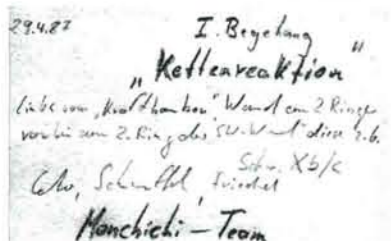 29.4.87 I. Begehung
„Kettenreaktion"
links vom „Krafthanken" Wand am 2 Ringe
vorbei zum 2. Ring der SW-Wand diese z.b.
Schw. Xb/c
Schuffel, Friedel
Monchichi-Team